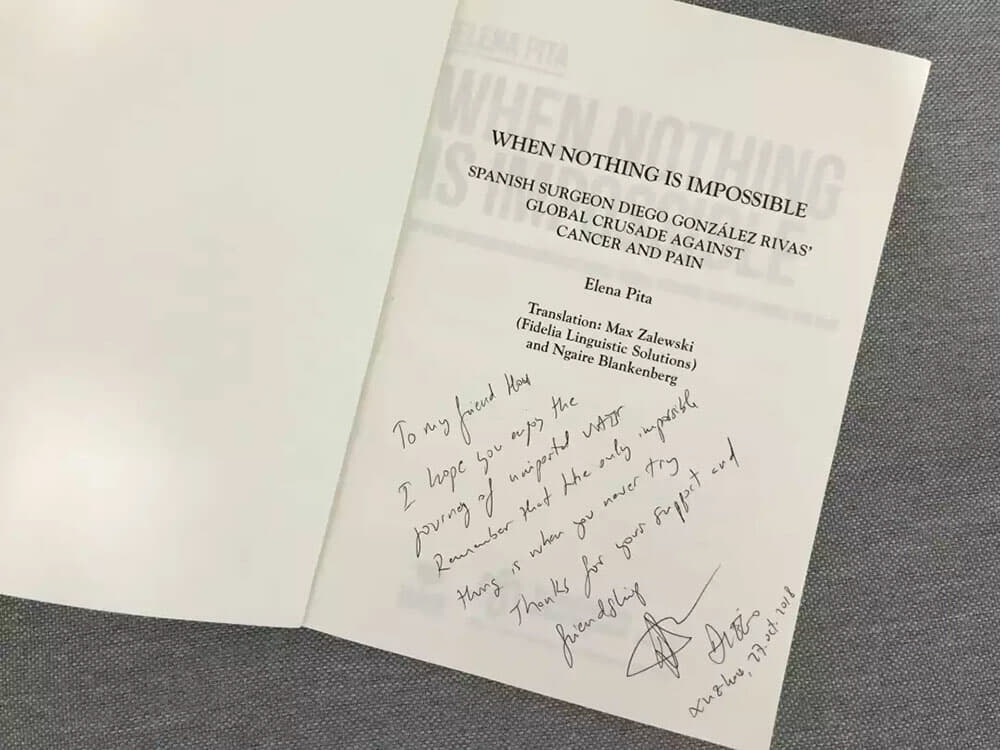 ELENA PITA
WHEN NOTHING
IS IMPOSSIBLE
WHEN NOTHING IS IMPOSSIBLE
SPANISH SURGEON DIEGO GONZÁLEZ RIVAS'
GLOBAL CRUSADE AGAINST
CANCER AND PAIN
Elena Pita
Translation: Max Zalewski
(Fidelia Linguistic Solutions)
and Ngaire Blankenberg
To my friend
I hope you enjoy the
journey of uniportal VATS
Remember that the only impossible
thing is when you never try
Thanks for your support and
friendship
Xuzhou, 27.oct.2018